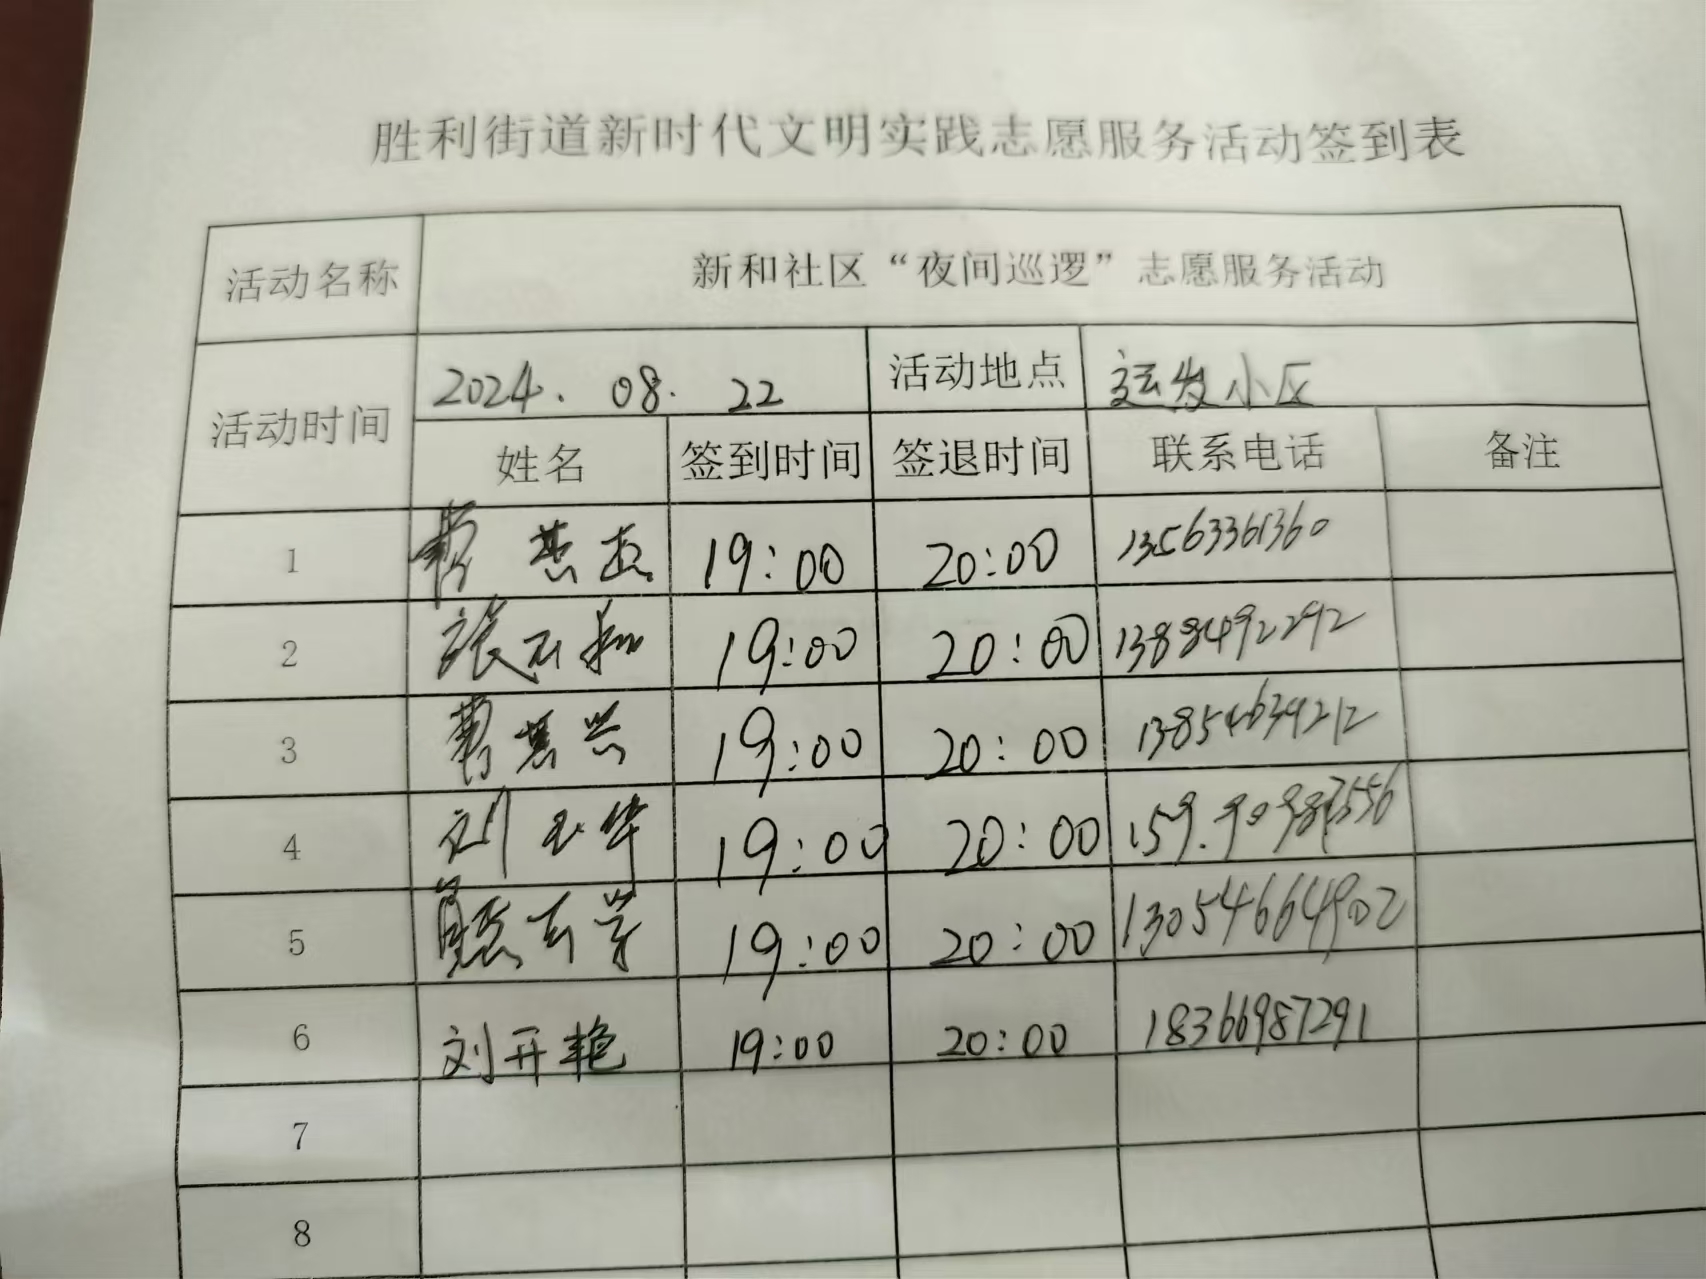 胜利街道新时代文明实践志愿服务活动签到表
活动名称 新和社区“夜间巡逻”志愿服务活动
活动时间 2024.08.22 活动地点 运发小区
姓名 签到时间 签退时间 联系电话 备注
1 19:00 20:00 13563361360
2 张玉 19:00 20:00 13884922292
3 19:00 20:00 13854634212
4 刘玉华 19:00 20:00
5 19:00 20:00 13054664902
6 刘开艳 19:00 20:00 18366987291
7
8